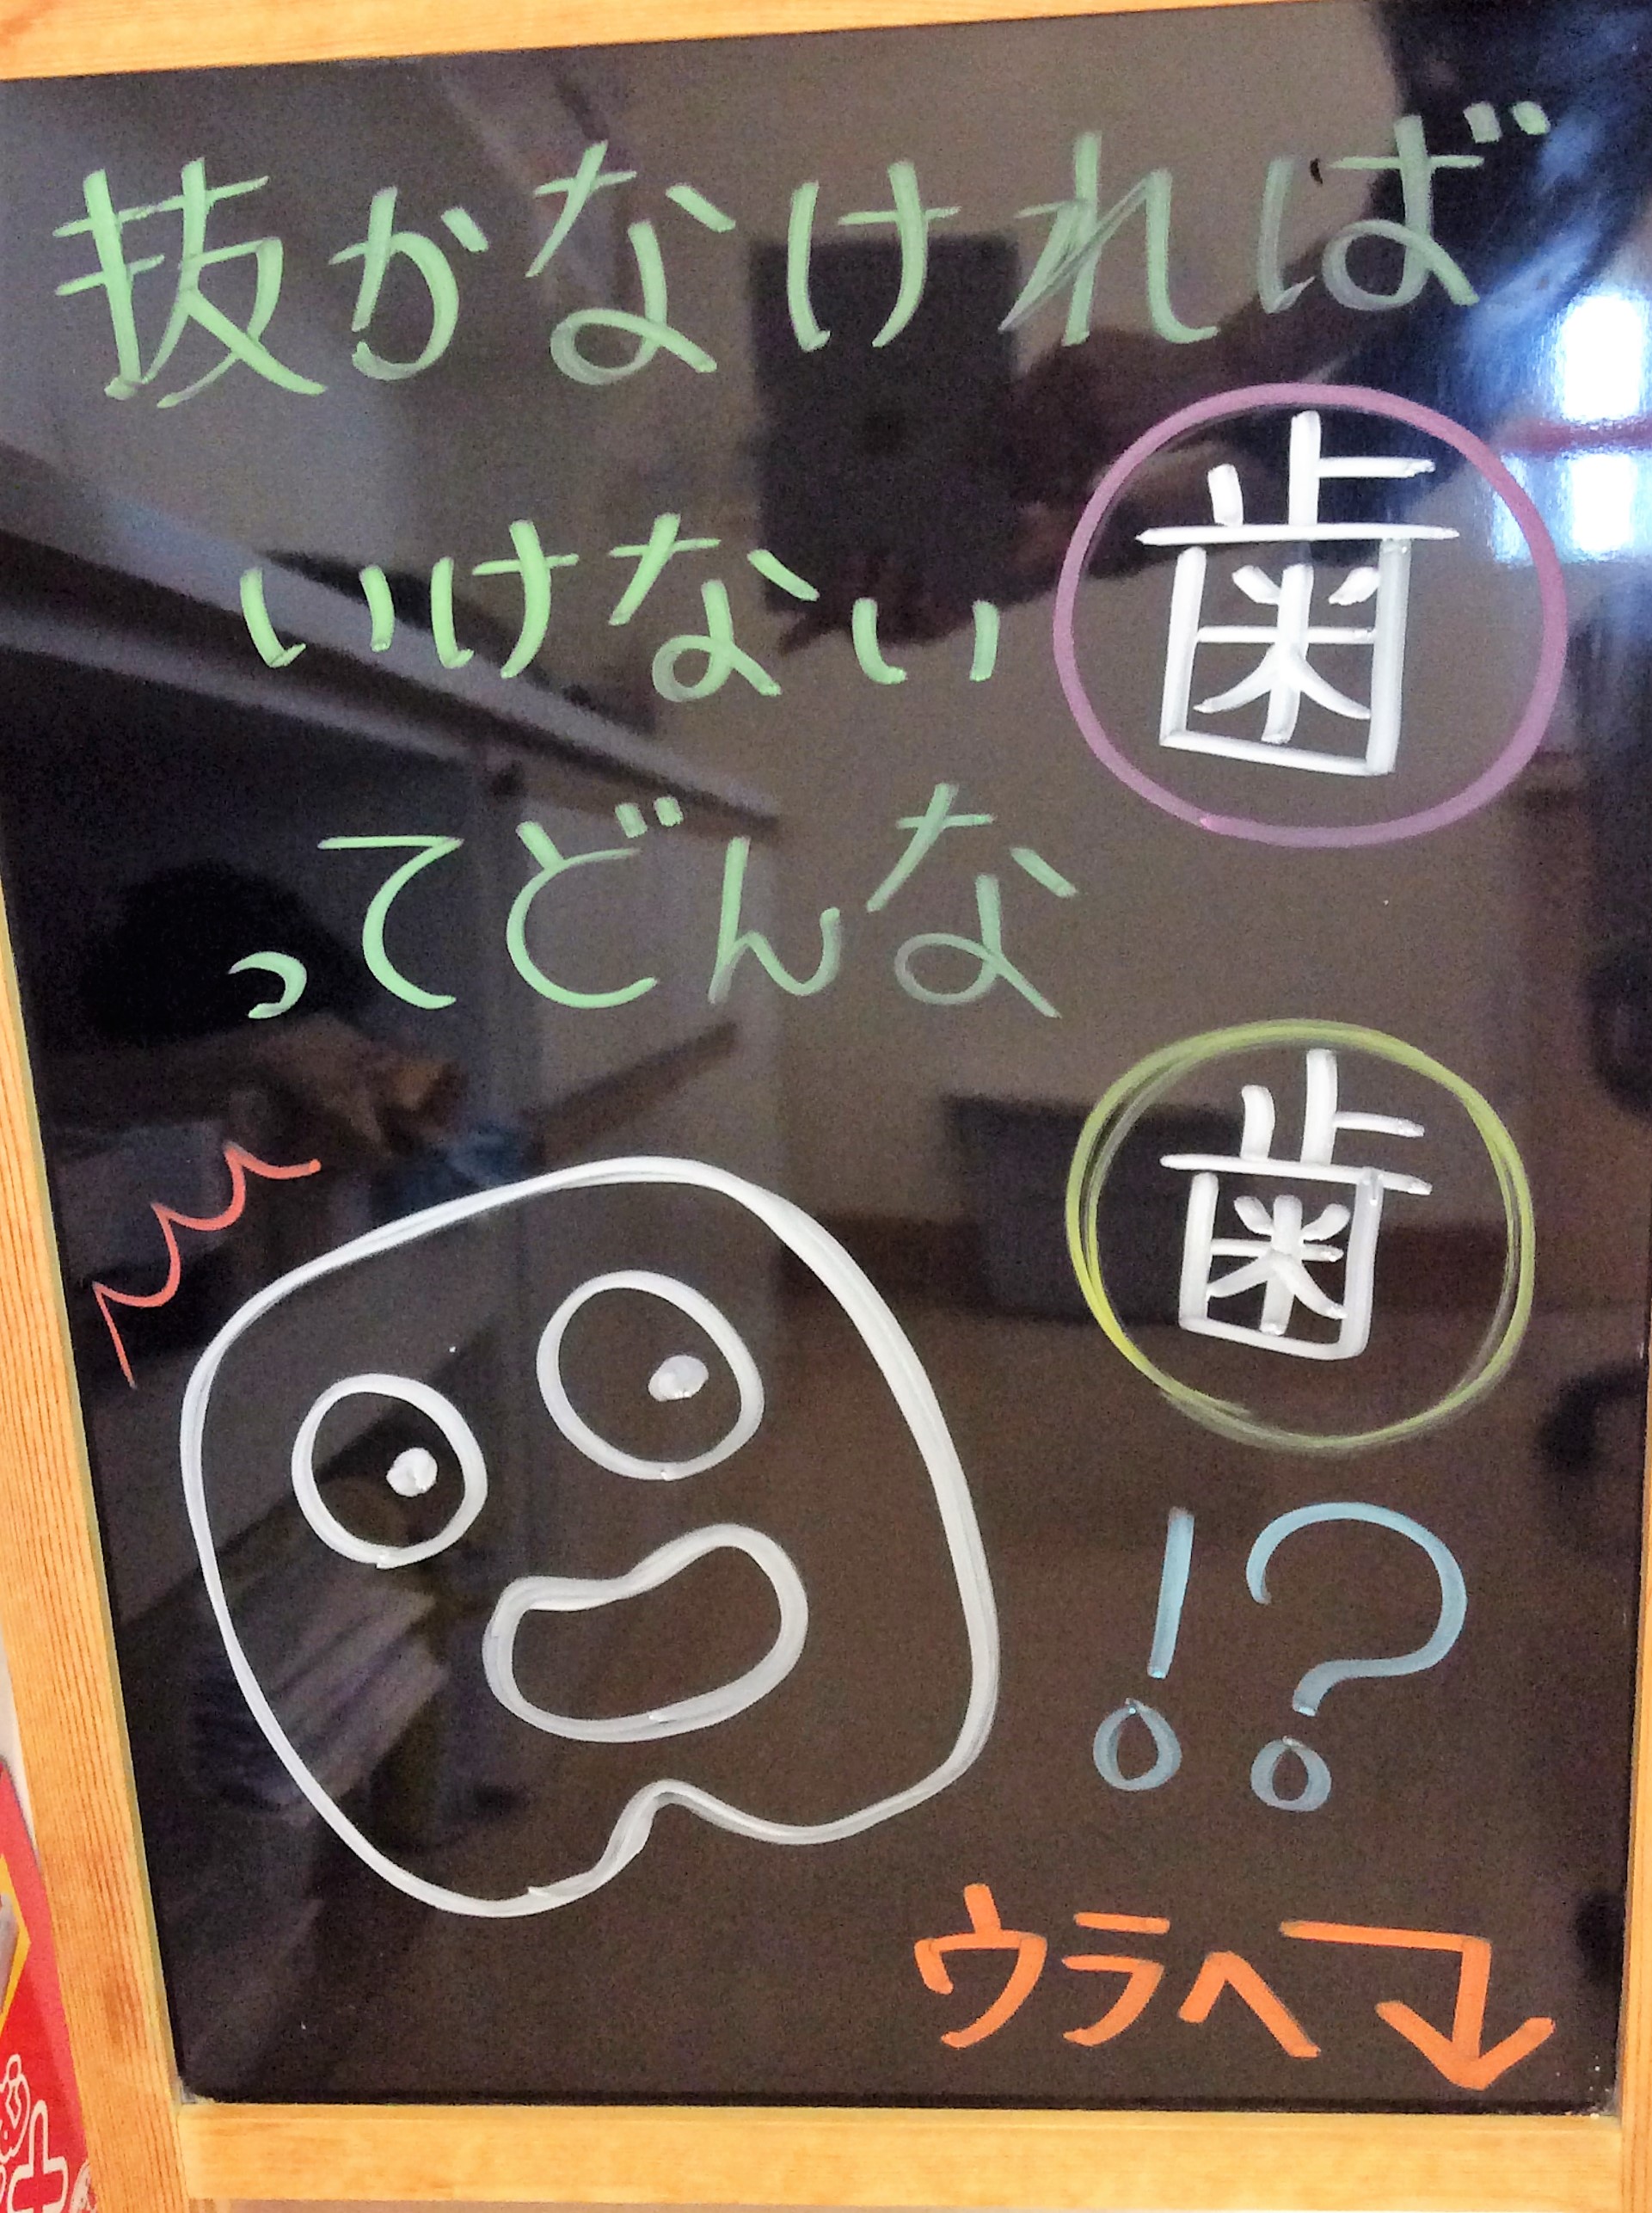 抜かなければ
いけない歯
ってどんな
歯
!?
ウラへ